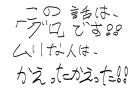 この話は、
「グロ」です!!
ムリな人は、
かえったかえった!!